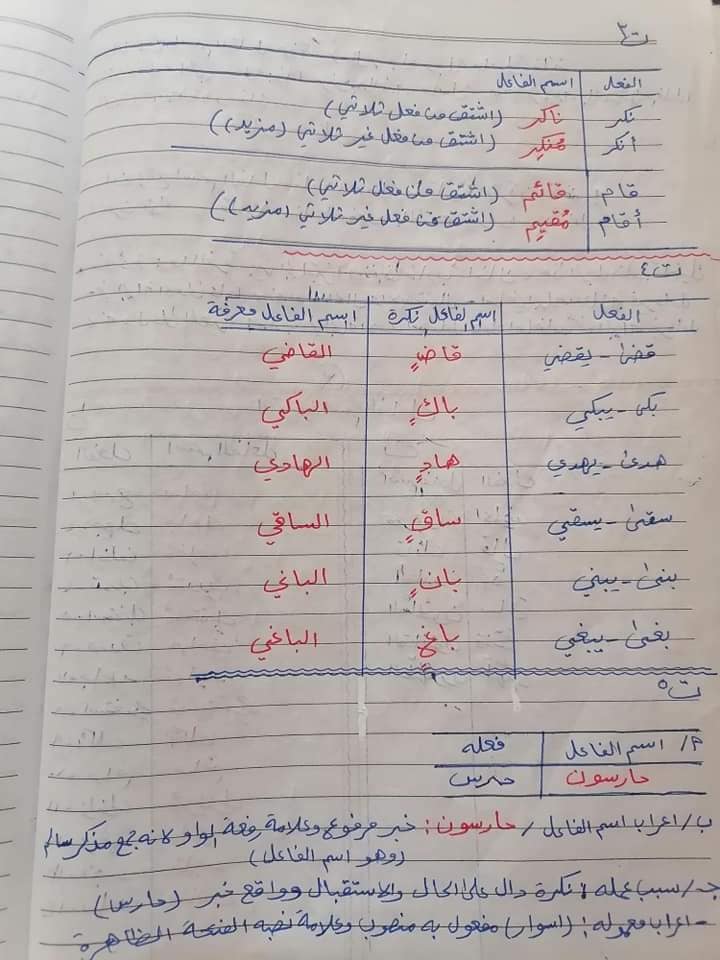 ت٣
الفعل | اسم الفاعل
نكر | ناكر (اشتق من فعل ثلاثي)
أنكر | مُنكِر (اشتق من فعل غير ثلاثي (مزيد))
قام | قائم (اشتق من فعل ثلاثي)
أقام | مُقيم (اشتق من فعل غير ثلاثي (مزيد))
ت٤
الفعل | اسم الفاعل نكرة | اسم الفاعل معرفة
قضى - يقضي | قاضٍ | القاضي
بكى - يبكي | باكٍ | الباكي
هدى - يهدي | هادٍ | الهادي
سقى - يسقي | ساقٍ | الساقي
بنى - يبني | بانٍ | الباني
بغى - يبغي | باغٍ | الباغي
ت٥
أ/ اسم الفاعل | فعله
حارسون | حرس
ب/ اعراب اسم الفاعل / حارسون: خبر مرفوع وعلامة رفعه الواو لانه جمع مذكر سالم
(وهو اسم الفاعل)
جـ/ سبب عمله: نكرة دال على الحال والاستقبال وواقع خبر (حارس)
- اعراب معموله: (اسوار) مفعول به منصوب وعلامة نصبه الفتحة الظاهرة